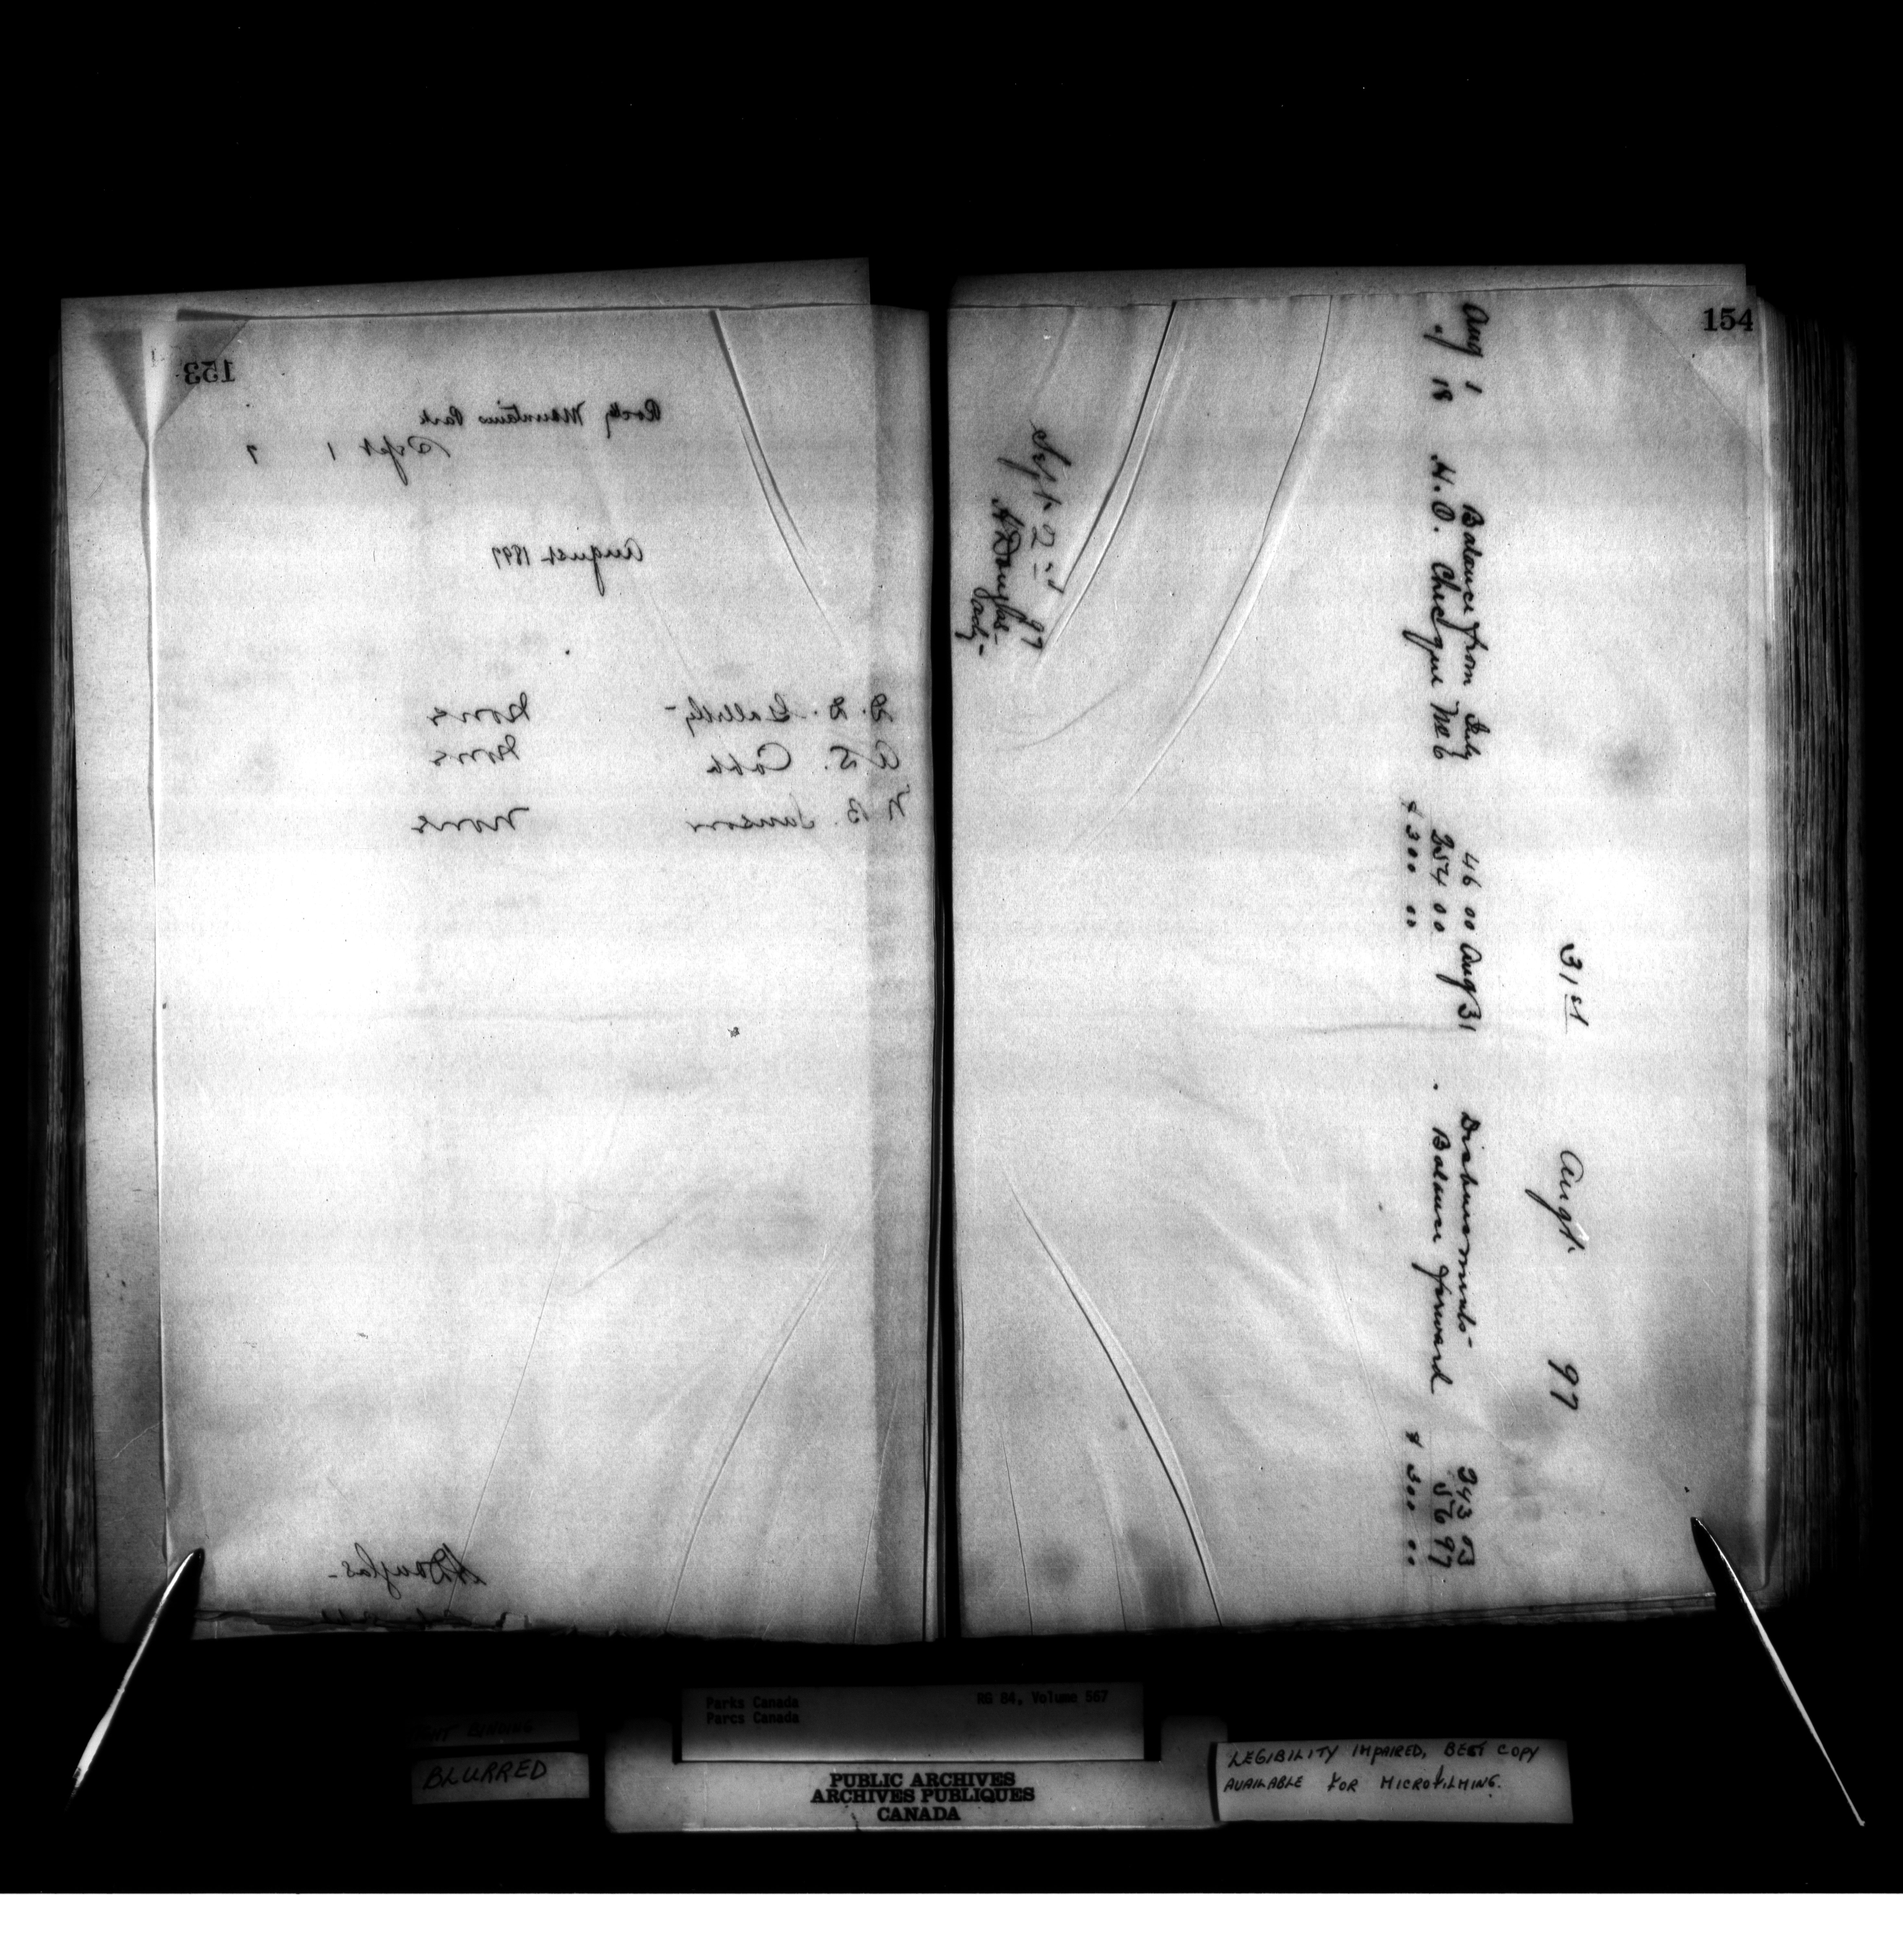 153
Rocky Mountains Park
Sept 1 7
August 1897
D. D. Galletly - None
A. S. Cobb None
N B. Sanson None
A Douglas -
154
31st Augt. 97
Aug 1 Balance from July 46 00 Aug 31 Disbursements - 243 03
" 18 H.O. Cheque No 6 254 00 Balance forward 56 97
$ 300 00 $ 300 00
Sept 2nd 97
A Douglas -
BLURRED
Parks Canada RG 84, Volume 567
Parcs Canada
PUBLIC ARCHIVES
ARCHIVES PUBLIQUES
CANADA
LEGIBILITY IMPAIRED, BEST COPY
AVAILABLE FOR MICROFILMING.